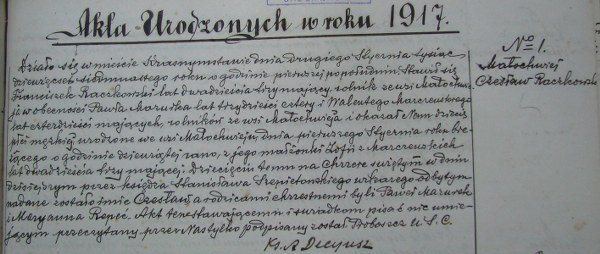 Akta Urodzonych w roku 1917.
No 1.
Małochwiej
Czesław Raczkowski
Działo się w mieście Krasnymstawie dnia drugiego Stycznia tysiąc
dziewięćset siedmnastego roku o godzinie pierwszej popołudniu. Stawił się
Franciszek Raczkowski lat dwadzieścia trzy mający, rolnik ze wsi Małochwie-
ja w obecności Pawła Maruszka lat trzydzieści cztery i Walentego Marczewskiego
lat czterdzieści mających, rolników ze wsi Małochwieja i okazał Nam dziecię
płci męzkiej, urodzone we wsi Małochwieju, dnia pierwszego Stycznia roku bie-
żącego o godzinie dziewiątej rano, z jego małżonki Zofii z Marczewskich
lat dwadzieścia trzy mającej. Dziecięciu temu na Chrzcie świętym w dniu
dzisiejszym przez księdza Stanisława wikarego odbytym
nadane zostało imię Czesław, a rodzicami chrzestnemi byli Paweł
i Maryanna Repeć. Akt ten stawającemu i świadkom pisać nie umie-
jącym przeczytany przez Nas tylko podpisany został. Proboszcz U.S.C.
Ks. A